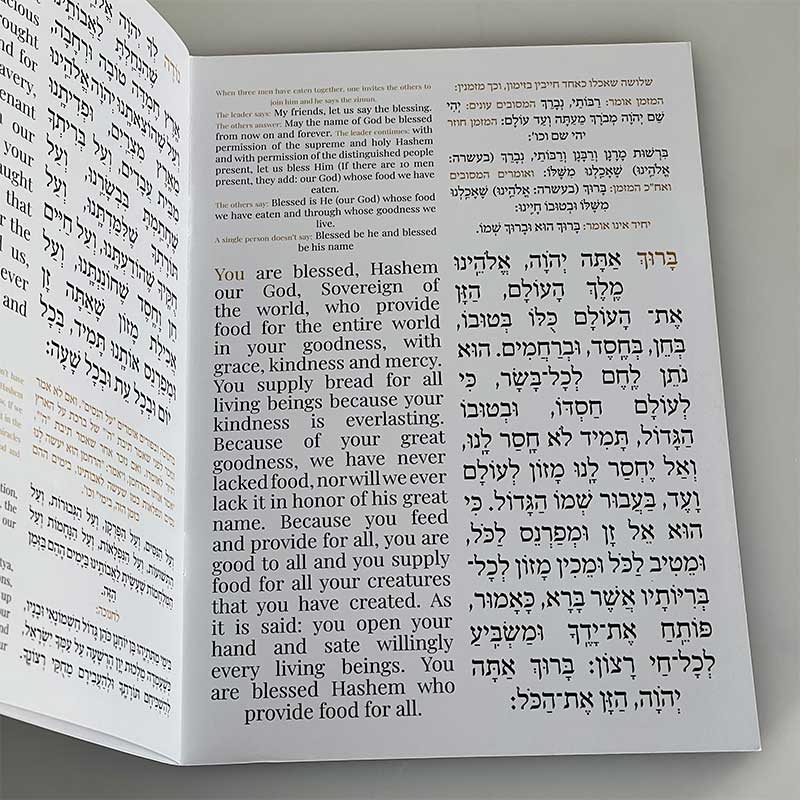 acious
brought
and for
avery,
enant
n our
and
that
r the
d us,
ever
and
לְךָ יְהֹוָה
שֶׁהִנְחַלְתָּ לַאֲבוֹתֵינוּ
אֶרֶץ חֶמְדָּה טוֹבָה וּרְחָבָה,
וְעַל שֶׁהוֹצֵאתָנוּ יְהֹוָה אֱלֹהֵינוּ
מֵאֶרֶץ מִצְרַיִם, וּפְדִיתָנוּ
מִבֵּית עֲבָדִים, וְעַל בְּרִיתְךָ
שֶׁחָתַמְתָּ בִּבְשָׂרֵנוּ, וְעַל
תּוֹרָתְךָ שֶׁלִּמַּדְתָּנוּ, וְעַל
חֻקֶּיךָ שֶׁהוֹדַעְתָּנוּ, וְעַל חַיִּים
חֵן וָחֶסֶד שֶׁחוֹנַנְתָּנוּ, וְעַל
אֲכִילַת מָזוֹן שָׁאַתָּה זָן
וּמְפַרְנֵס אוֹתָנוּ תָּמִיד, בְּכָל
יוֹם וּבְכָל עֵת וּבְכָל שָׁעָה:
וְעַל הַנִּסִּים, וְעַל הַפֻּרְקָן, וְעַל הַגְּבוּרוֹת, וְעַל
הַתְּשׁוּעוֹת, וְעַל הַנִּפְלָאוֹת, וְעַל הַנֶּחָמוֹת וְעַל
הַמִּלְחָמוֹת שֶׁעָשִׂיתָ לַאֲבוֹתֵינוּ בַּיָּמִים הָהֵם בַּזְּמַן
הַזֶּה.
לחנוכה:
בִּימֵי מַתִּתְיָהוּ בֶּן יוֹחָנָן כֹּהֵן גָּדוֹל חַשְׁמוֹנָאִי וּבָנָיו,
כְּשֶׁעָמְדָה מַלְכוּת יָוָן הָרְשָׁעָה עַל עַמְּךָ יִשְׂרָאֵל,
לְהַשְׁכִּיחָם תּוֹרָתֶךָ וּלְהַעֲבִירָם מֵחֻקֵּי רְצוֹנֶךָ.
When three men have eaten together, one invites the others to
join him and he says the zimun.
The leader says: My friends, let us say the blessing.
The others answer: May the name of God be blessed
from now on and forever. The leader continues: with
permission of the supreme and holy Hashem
and with permission of the distinguished people
present, let us bless Him (If there are 10 men
present, they add: our God) whose food we have
eaten.
The others say: Blessed is He (our God) whose food
we have eaten and through whose goodness we
live.
A single person doesn't say: Blessed be he and blessed
be his name
You are blessed, Hashem
our God, Sovereign of
the world, who provide
food for the entire world
in your goodness, with
grace, kindness and mercy.
You supply bread for all
living beings because your
kindness is everlasting.
Because of your great
goodness, we have never
lacked food, nor will we ever
lack it in honor of his great
name. Because you feed
and provide for all, you are
good to all and you supply
food for all your creatures
that you have created. As
it is said: you open your
hand and sate willingly
every living beings. You
are blessed Hashem who
provide food for all.
שלושה שאכלו כאחד חייבין בזימון, וכך מזמנין:
המזמן אומר: רַבּוֹתַי, נְבָרֵךְ המסובים עונים: יְהִי
שֵׁם יְהֹוָה מְבֹרָךְ מֵעַתָּה וְעַד עוֹלָם: המזמן חוזר
יהי שם וכו':
בִּרְשׁוּת מָרָנָן וְרַבָּנָן וְרַבּוֹתַי, נְבָרֵךְ (בעשרה:
אֱלֹהֵינוּ) שֶׁאָכַלְנוּ מִשֶּׁלּוֹ: ואומרים המסובים
ואח"כ המזמן: בָּרוּךְ (בעשרה: אֱלֹהֵינוּ) שֶׁאָכַלְנוּ
מִשֶּׁלּוֹ וּבְטוּבוֹ חָיִינוּ:
יחיד אינו אומר: בָּרוּךְ הוּא וּבָרוּךְ שְׁמוֹ.
בָּרוּךְ אַתָּה יְהֹוָה, אֱלֹהֵינוּ
מֶלֶךְ הָעוֹלָם, הַזָּן
אֶת־ הָעוֹלָם כֻּלּוֹ בְּטוּבוֹ,
בְּחֵן, בְּחֶסֶד, וּבְרַחֲמִים. הוּא
נֹתֵן לֶחֶם לְכָל־בָּשָׂר, כִּי
לְעוֹלָם חַסְדּוֹ, וּבְטוּבוֹ
הַגָּדוֹל, תָּמִיד לֹא חָסַר לָנוּ,
וְאַל יֶחְסַר לָנוּ מָזוֹן לְעוֹלָם
וָעֶד, בַּעֲבוּר שְׁמוֹ הַגָּדוֹל. כִּי
הוּא אֵל זָן וּמְפַרְנֵס לַכֹּל,
וּמֵטִיב לַכֹּל וּמֵכִין מָזוֹן לְכָל־
בְּרִיּוֹתָיו אֲשֶׁר בָּרָא, כָּאָמוּר,
פּוֹתֵחַ אֶת־יָדֶךָ וּמַשְׂבִּיעַ
לְכָל־חַי רָצוֹן: בָּרוּךְ אַתָּה
יְהֹוָה, הַזָּן אֶת־הַכֹּל: